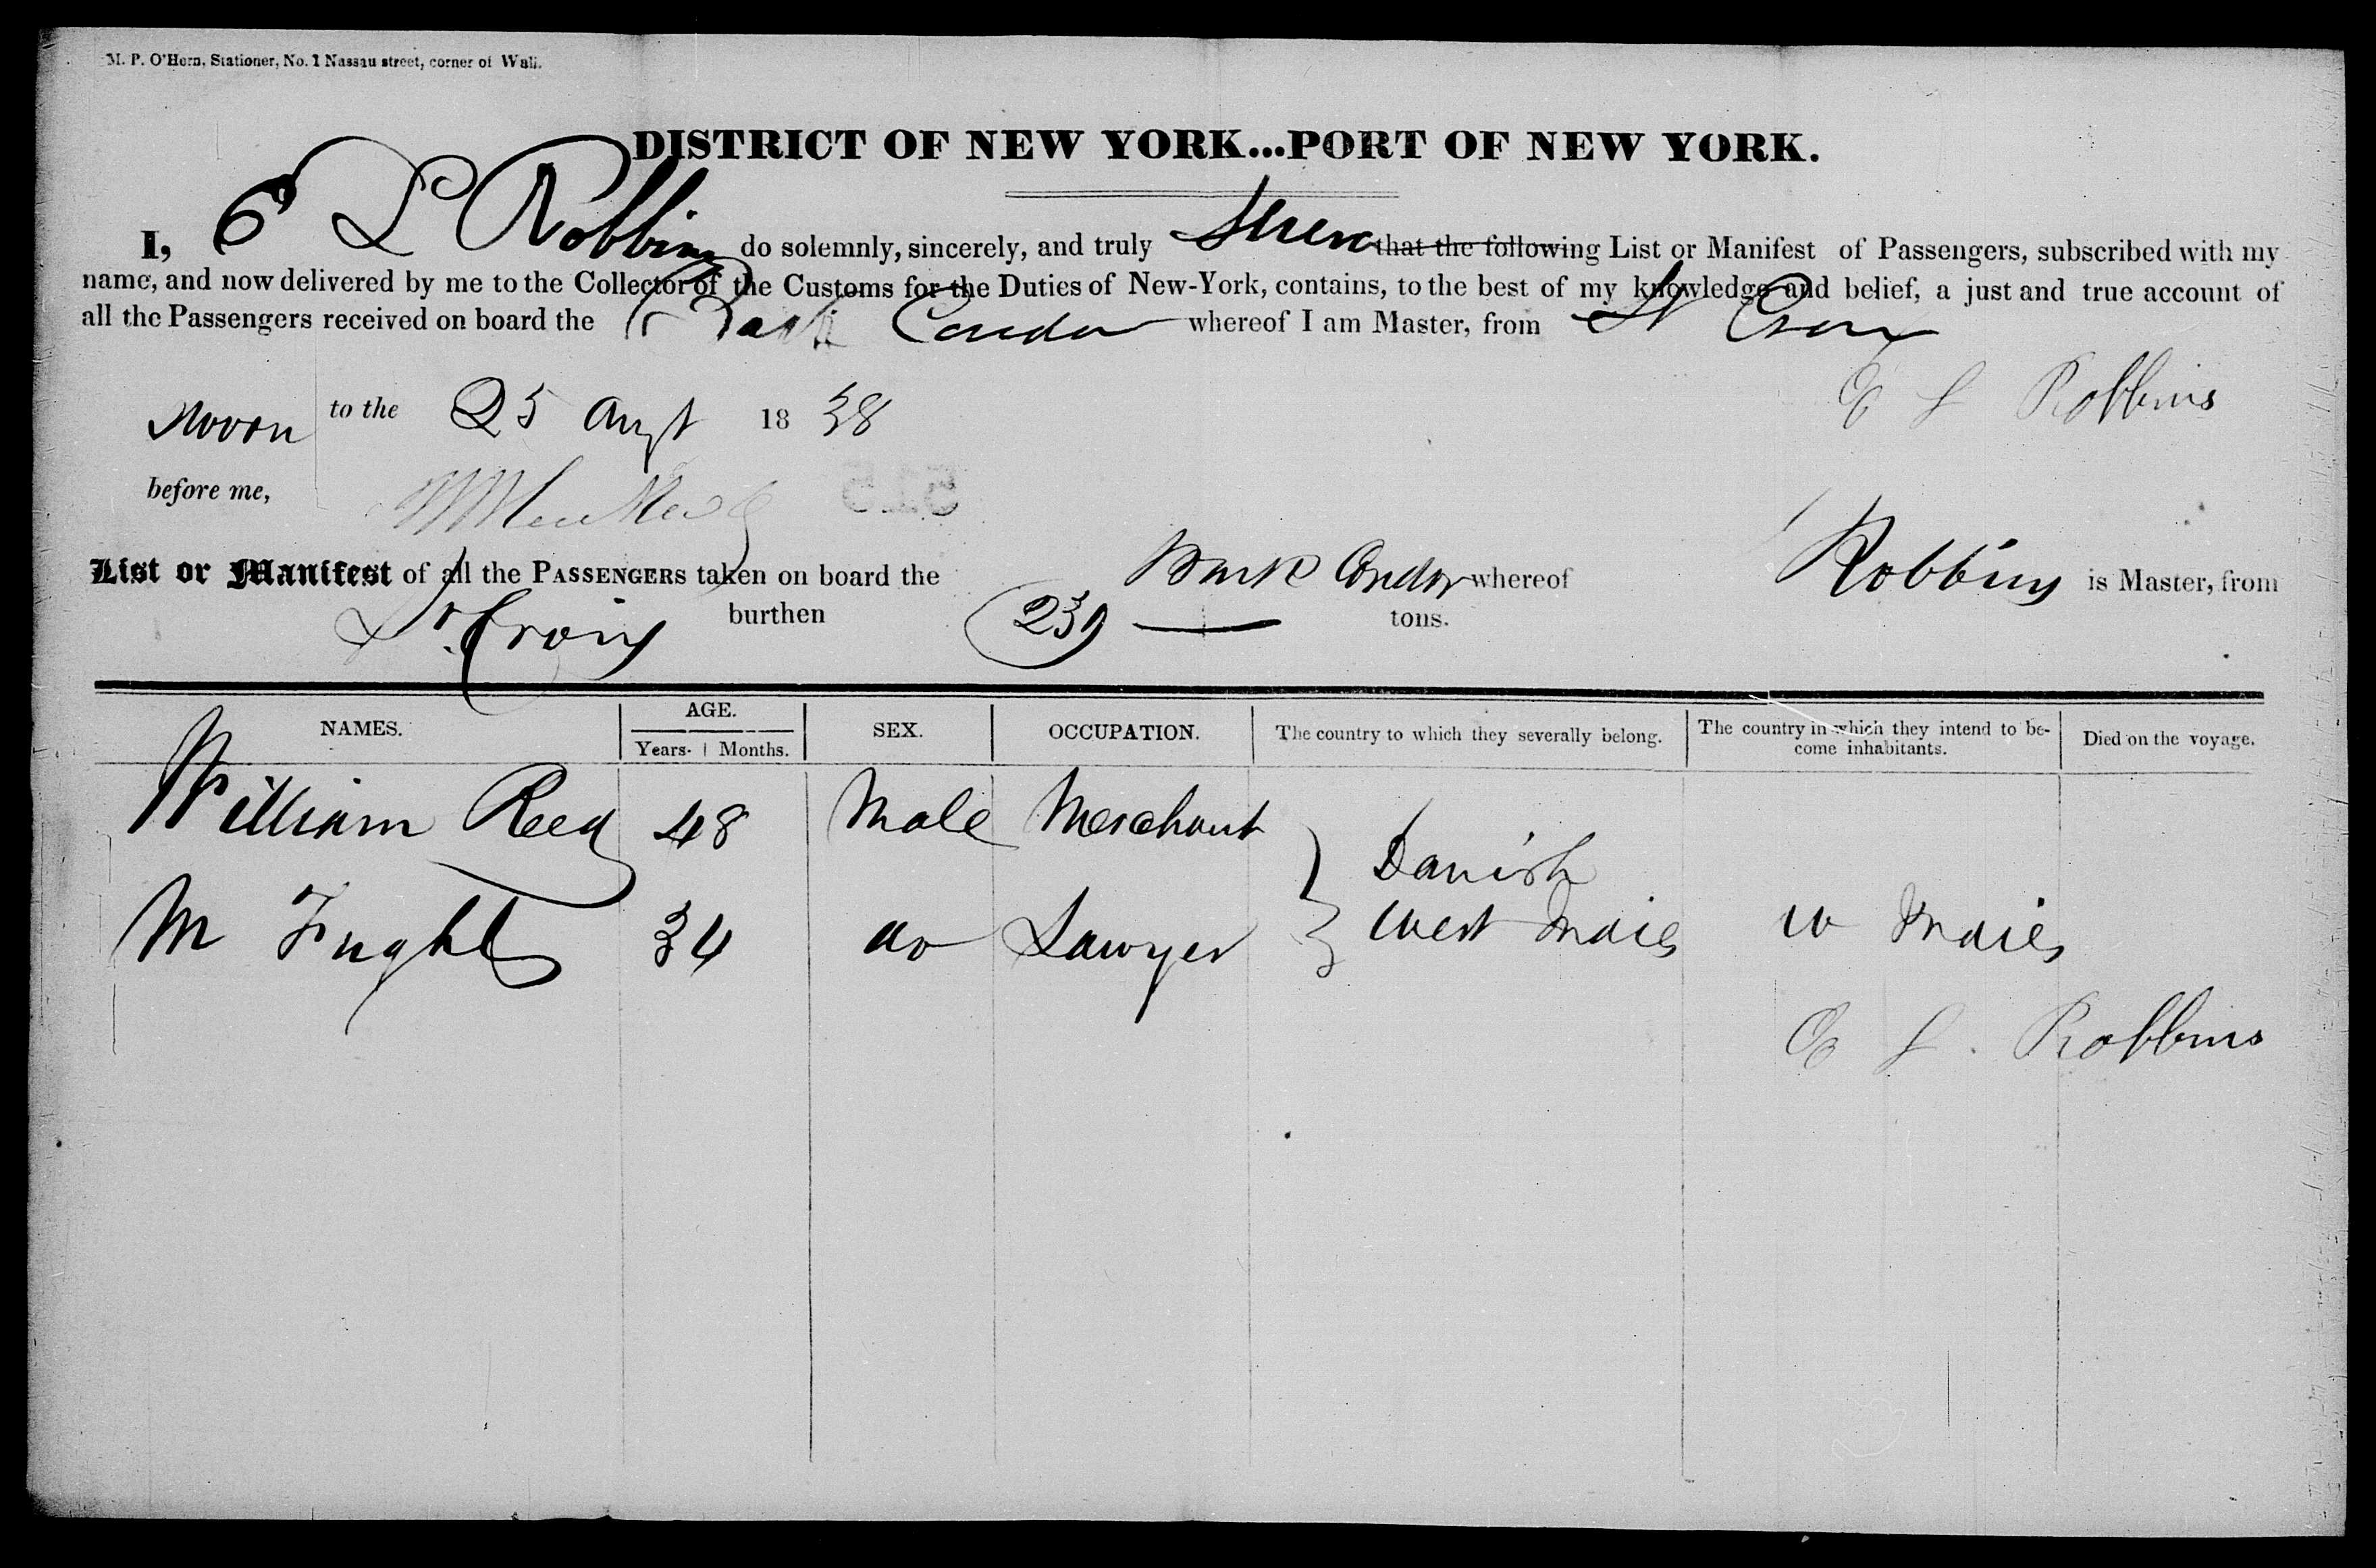 M. P. O'Hern, Stationer, No. 1 Nassau street, corner of Wall.
DISTRICT OF NEW YORK...PORT OF NEW YORK.
I, E L Robbins do solemnly, sincerely, and truly swear that the following List or Manifest of Passengers, subscribed with my
name, and now delivered by me to the Collector of the Customs for the Duties of New-York, contains, to the best of my knowledge and belief, a just and true account of
all the Passengers received on board the Bark Condor whereof I am Master, from St Croix
Sworn to the 25 Augt 1838 E L Robbins
before me,
List or Manifest of all the PASSENGERS taken on board the Bark Condor whereof Robbins is Master, from
St. Croix burthen 239 tons.
NAMES. AGE. Years. Months. SEX. OCCUPATION. The country to which they severally belong. The country in which they intend to become inhabitants. Died on the voyage.
William Reed 48 Male Merchant
} Danish
M Fught 34 do Lawyer West Indies W Indies
E L. Robbins